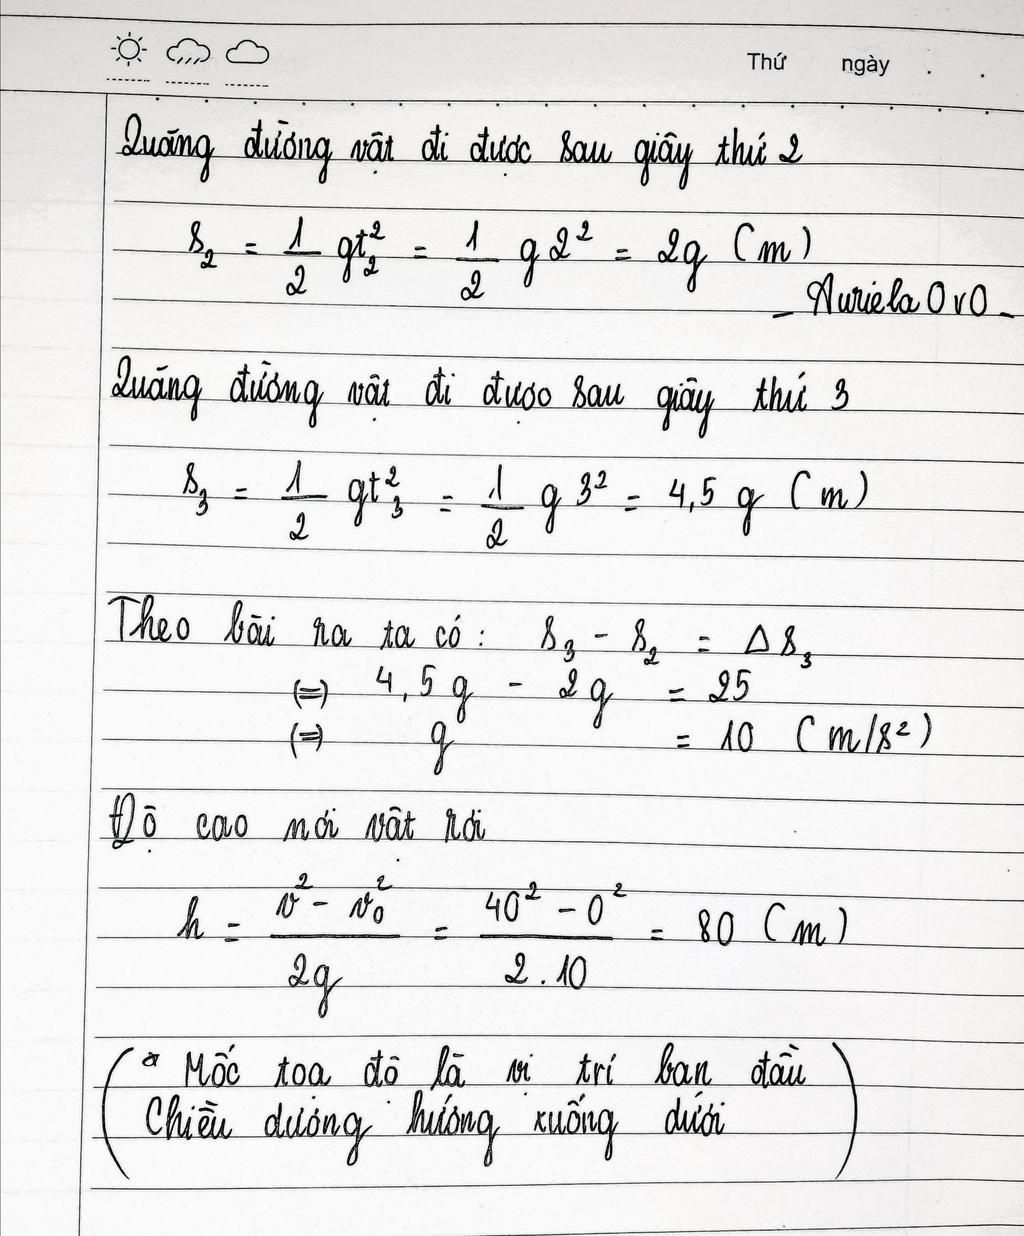 Thứ ngày
Quãng đường vật đi được sau giây thứ 2
s₂ = 1/2 gt₂² = 1/2 g 2² = 2g (m)
_ Auriela OvO _
Quãng đường vật đi được sau giây thứ 3
s₃ = 1/2 gt₃² = 1/2 g 3² = 4,5 g (m)
Theo bài ra ta có: s₃ - s₂ = Δs₃
(=) 4,5g - 2g = 25
(=) g = 10 (m/s²)
Độ cao nơi vật rơi
h = (v² - v₀²)/2g = (40² - 0²)/2.10 = 80 (m)
(* Mốc toạ độ là vị trí ban đầu
Chiều dương hướng xuống dưới)